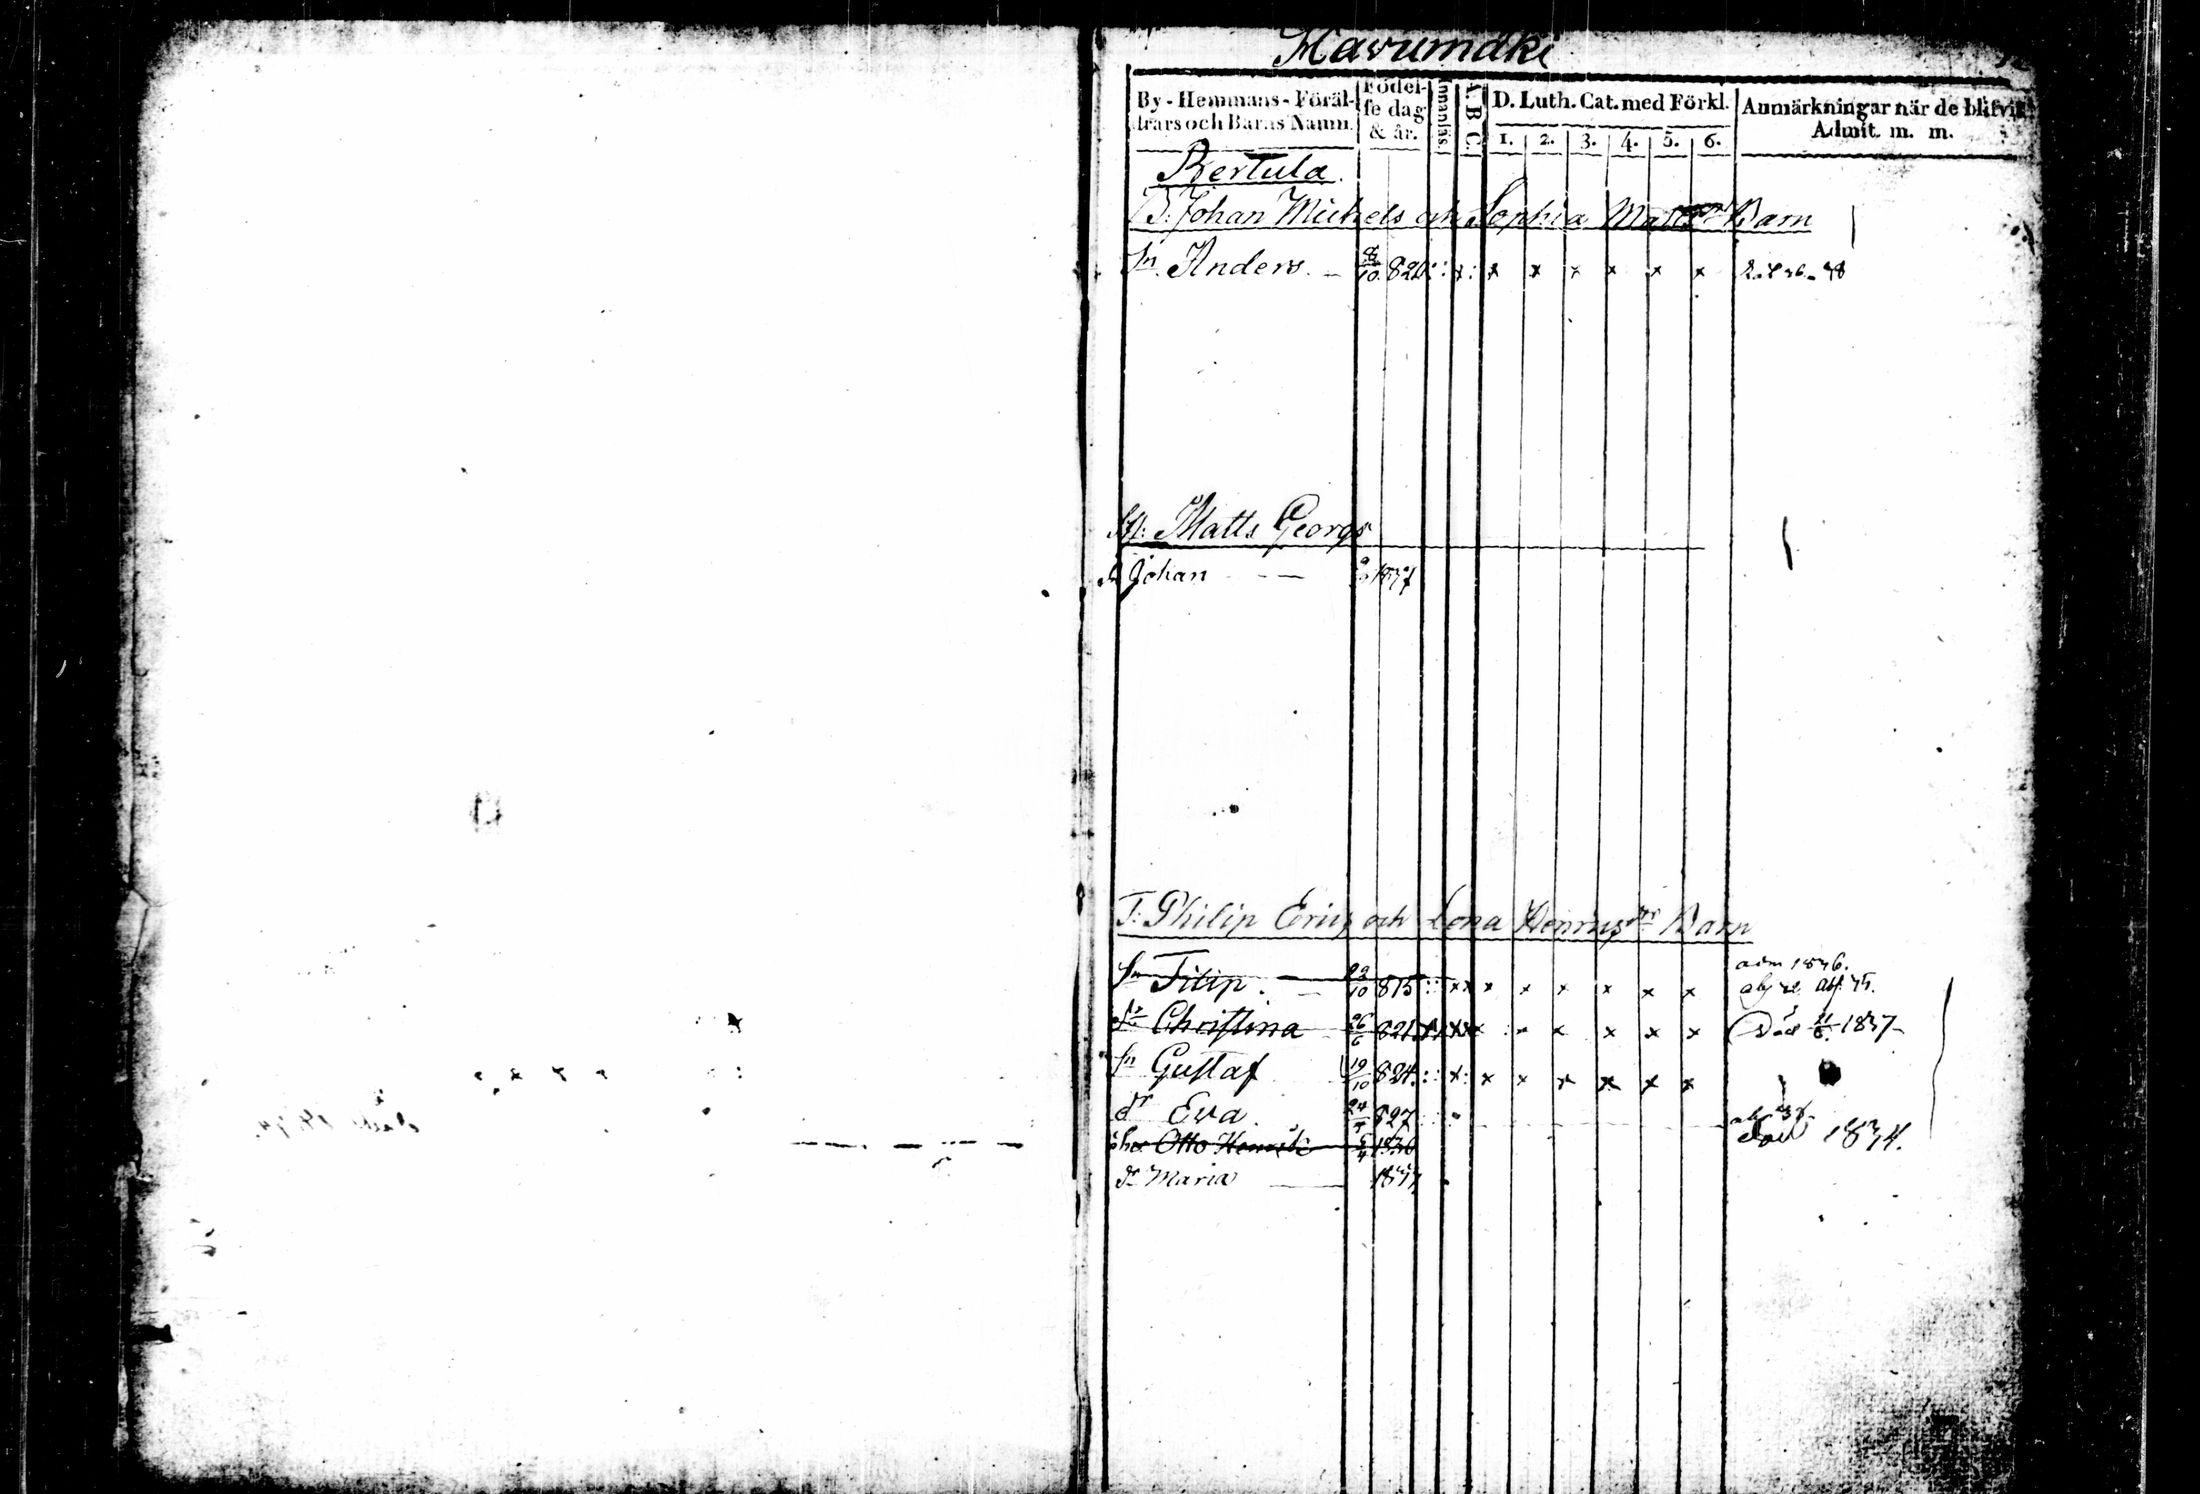 Havumäki
By-Hemmans-Föräl-
drars och Barns Namn.
Födel-
se dag
& år.
Innanläs.
A B C.
D. Luth. Cat. med Förkl.
1. 2. 3. 4. 5. 6.
Anmärkningar när de blifvit
Admit. m. m.
Bertula.
B: Johan Michels och Sophia Matts dr Barn
Sn. Anders. — 8/10 821 x x x x x x x
Matts Georgs
Sn Johan — — 1837
T: Philip Erics och Lena Henrics dr Barn
adm 1836.
Sn Filip. — 23/10 815 x x x x x x x x
dr Christina 26/6 821 x x x x x x Död 21/6 1837
Sn Gustaf 19/10 824 x x x x x x x
dr Eva 24/4 827
Otto Henrik 5/4 1830 död 1834.
dr Maria — 1837